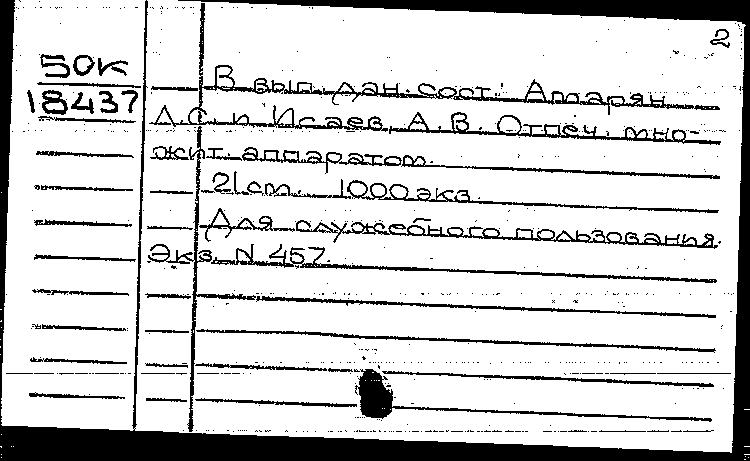 2
50к
18437
В вып. дан. сост.: Атарян
Л.С. и Исаев, А.В. Отпеч. мно-
жит. аппаратом.
21 cm. 1000 экз.
Для служебного пользования.
Экз. N 457.